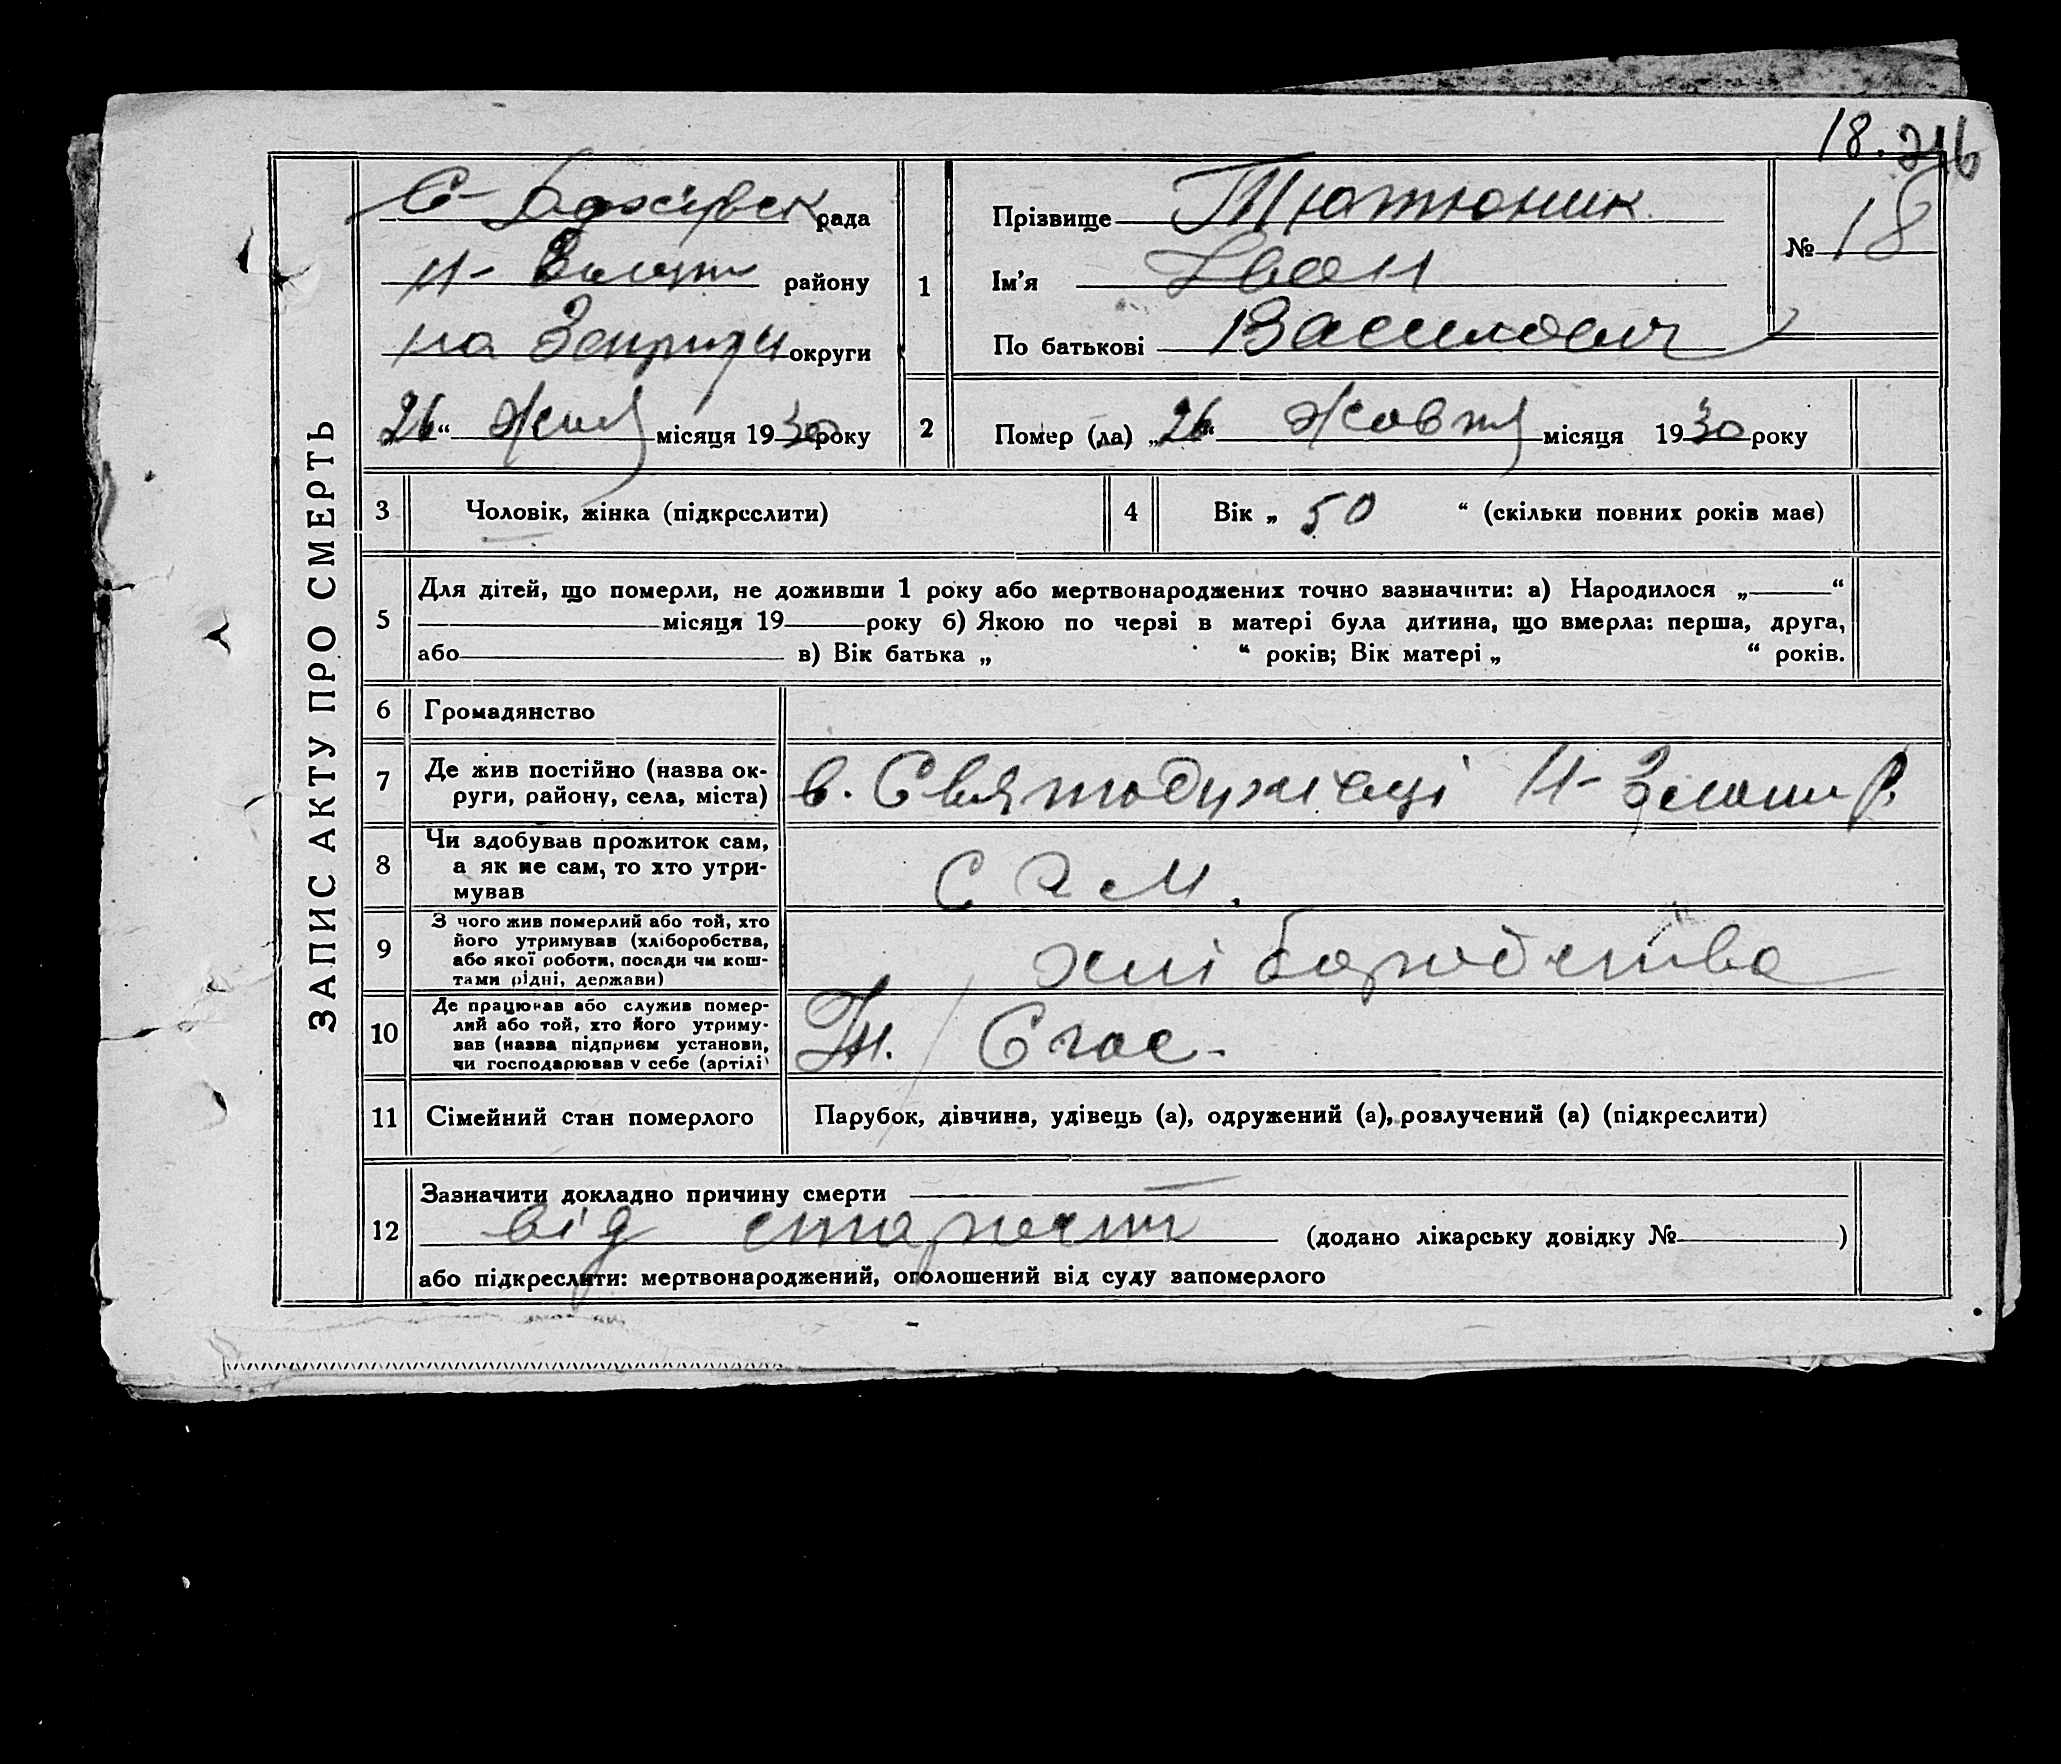 18. 216
ЗАПИС АКТУ ПРО СМЕРТЬ
рада
Н- району
на округи
„26“ місяця 1930 року
1
Прізвище Тютюник
Ім'я Іван
По батькові Василович
№ 18
2
Помер (ла) „26“ Жовтня місяця 1930 року
3 Чоловік, жінка (підкреслити)
4 Вік „ 50 “ (скільки повних років має)
5 Для дітей, що померли, не доживши 1 року або мертвонароджених точно зазначити: а) Народилося „ “
місяця 19 року б) Якою по черзі в матері була дитина, що вмерла: перша, друга,
або в) Вік батька „ “ років; Вік матері „ “ років.
6 Громадянство
7 Де жив постійно (назва ок-
руги, району, села, міста)
в. Святодухівці Н- р.
8 Чи здобував прожиток сам,
а як не сам, то хто утри-
мував
сам.
9 З чого жив померлий або той, хто
його утримував (хліборобства,
або якої роботи, посади чи кош-
тами рідні, держави)
хліборобства
10 Де працював або служив помер-
лий або той, хто його утриму-
вав (назва підприєм установи,
чи господарював у себе (артілі)
11 Сімейний стан померлого
Парубок, дівчина, удівець (а), одружений (а), розлучений (а) (підкреслити)
12 Зазначити докладно причину смерти
від старости (додано лікарську довідку № )
або підкреслити: мертвонароджений, оголошений від суду запомерлого